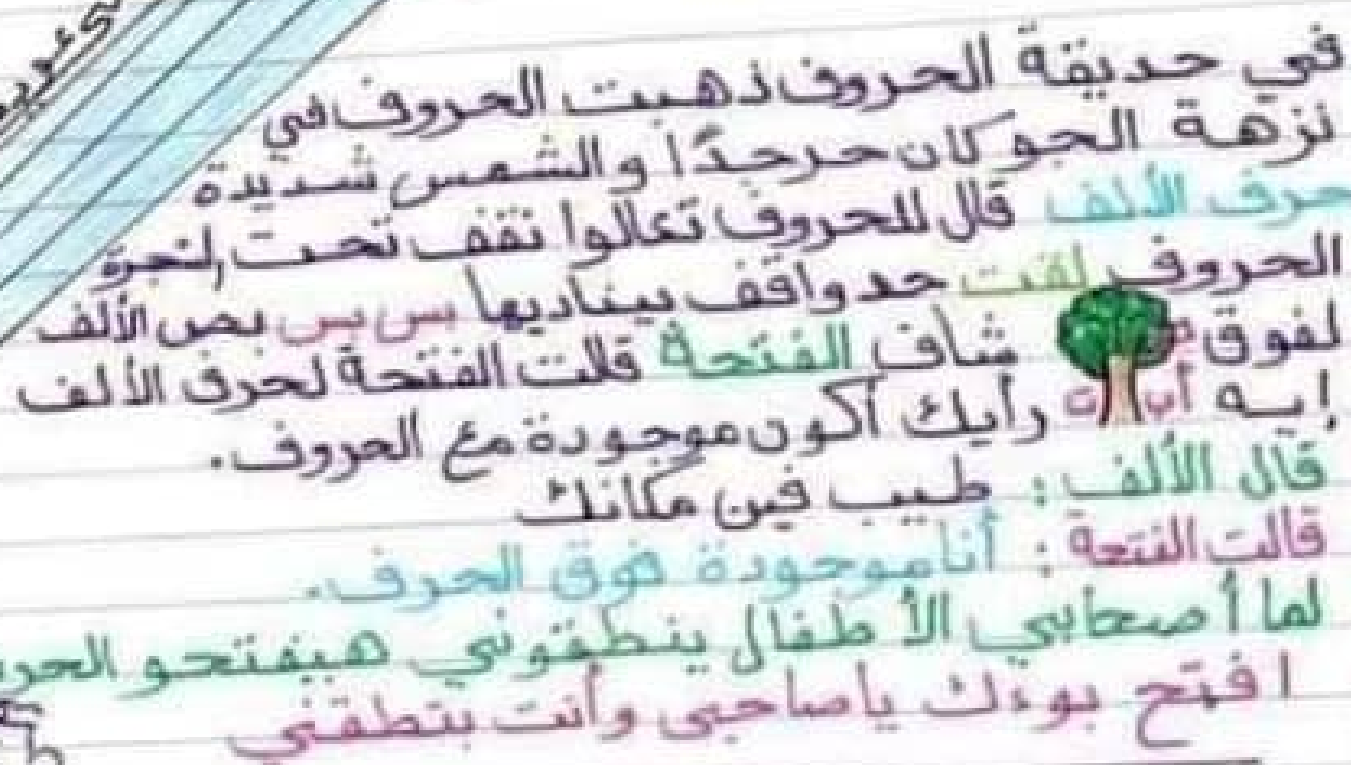 في حديقة الحروف ذهبت الحروف في
نزهة الجو كان حر جدًا والشمس شديدة
حرف الألف قال للحروف تعالوا نقف تحت
الحروف لقت حد واقف بيناديها بس بس بص الألف
لفوق شاف الفتحة قالت الفتحة لحرف الألف
إيه رأيك أكون موجودة مع الحروف.
قال الألف: طيب فين مكانك
قالت الفتحة: أنا موجودة فوق الحرف.
لما أصحابي الأطفال ينطقوني هيفتحو
افتح بوءك ياصاحبي وأنت بتنطقني